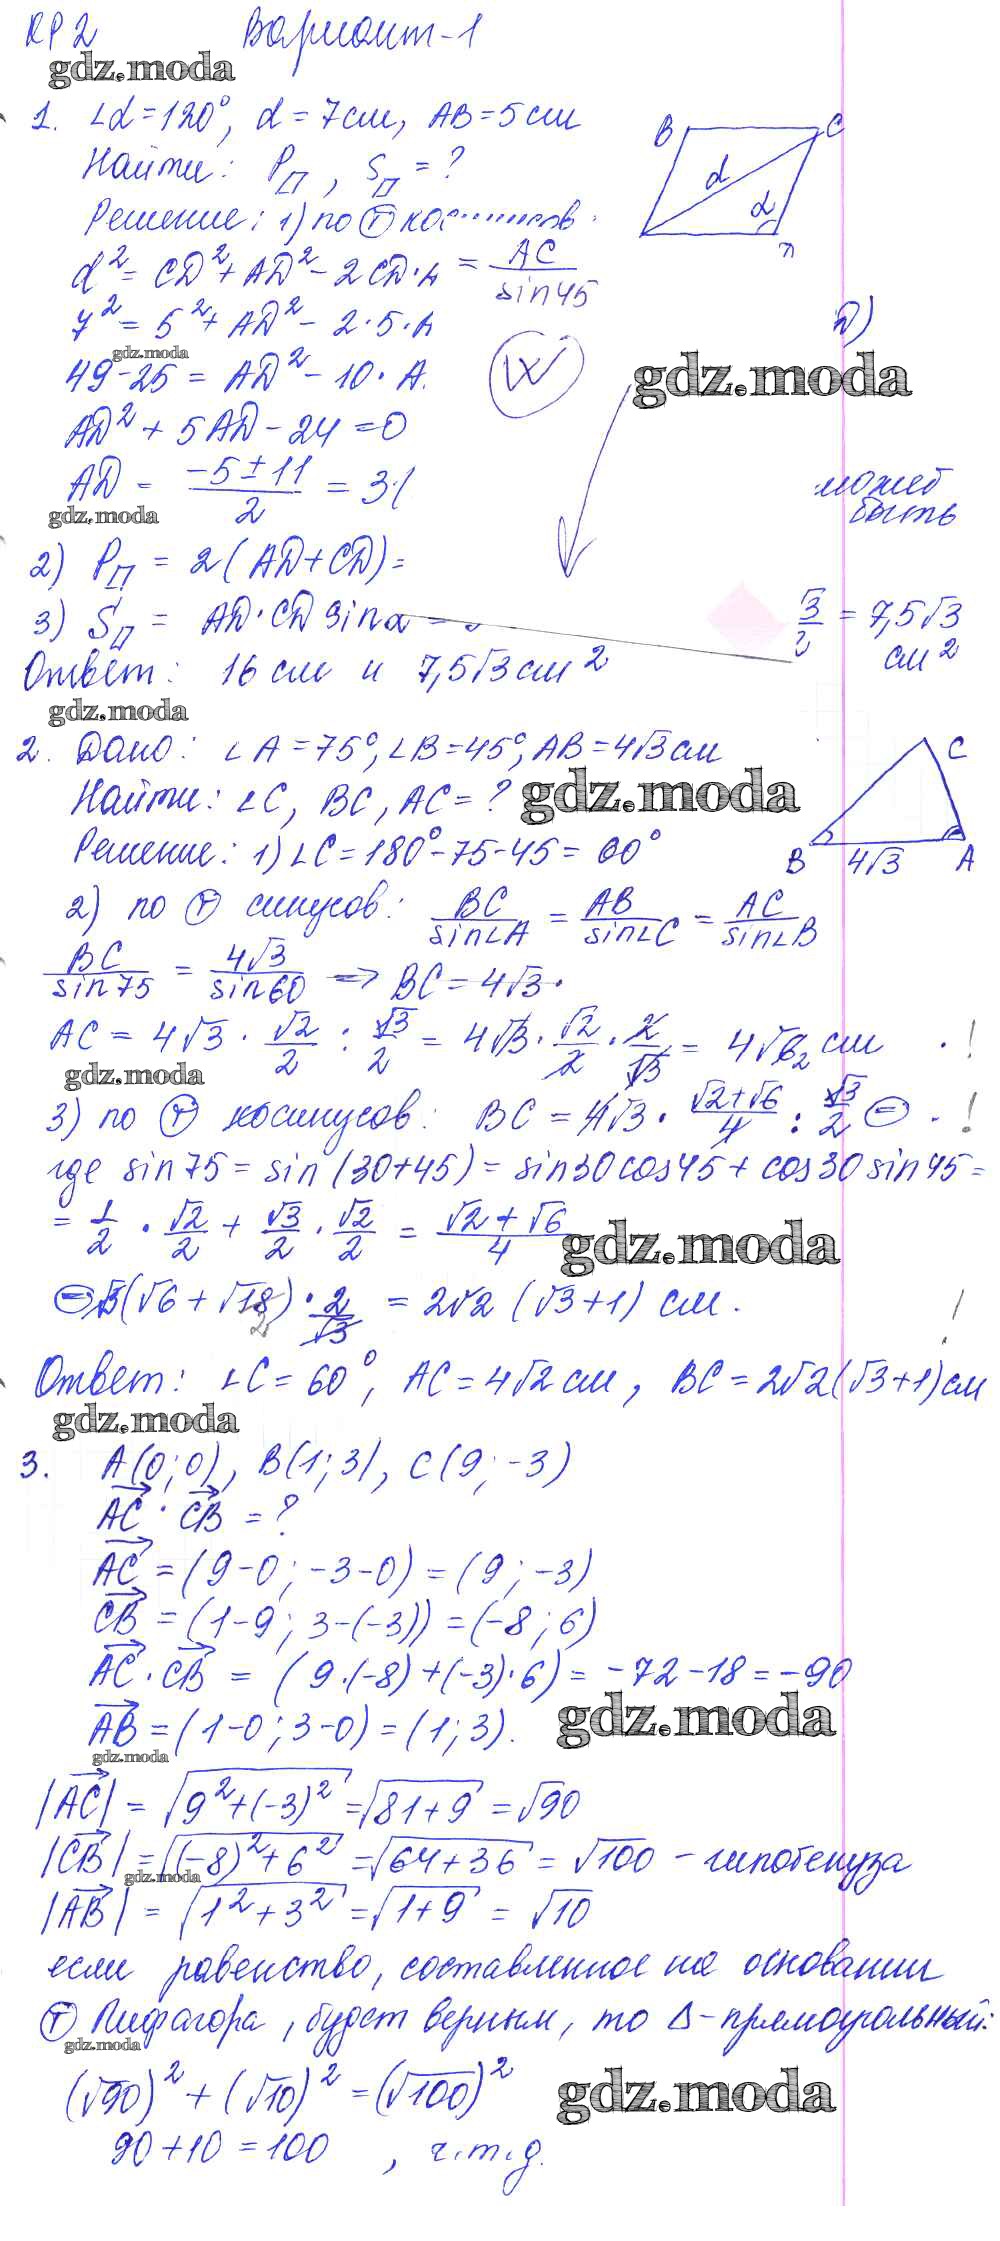 КР 2 Вариант-1
gdz.moda
1. ∠α = 120°, d = 7 см, AB = 5 см
Найти: Pп, Sп = ?
Решение: 1) по Ⓣ кос
d² = CD² + AD² - 2CD·A = AC/sin45
7² = 5² + AD² - 2·5·A
gdz.moda
49 - 25 = AD² - 10·A.
AD² + 5AD - 24 = 0
AD = (-5 ± 11)/2 = 3
gdz.moda
B C
d α
D
W
2)
gdz.moda
может
быть
2) Pп = 2(AD + CD) =
3) Sп = AD·CD sinα = √3/2 = 7,5√3 см²
Ответ: 16 см и 7,5√3 см²
gdz.moda
2. Дано: ∠A = 75°, ∠B = 45°, AB = 4√3 см
Найти: ∠C, BC, AC = ?
gdz.moda
Решение: 1) ∠C = 180° - 75 - 45 = 60°
C
B 4√3 A
2) по Ⓣ синусов: BC/sin∠A = AB/sin∠C = AC/sin∠B
BC/sin75 = 4√3/sin60 => BC = 4√3·
AC = 4√3 · √2/2 : √3/2 = 4√3 · √2/2 · 2/√3 = 4√2 см · !
gdz.moda
3) по Ⓣ косинусов: BC = 4√3 · (√2+√6)/4 : √3/2 ⊜ · !
где sin75 = sin(30+45) = sin30cos45 + cos30sin45 =
= 1/2 · √2/2 + √3/2 · √2/2 = (√2+√6)/4
gdz.moda
⊜ √3(√6 + √18) · 2/√3 = 2√2(√3+1) см. !
Ответ: ∠C = 60°, AC = 4√2 см, BC = 2√2(√3+1) см
gdz.moda
3. A(0; 0), B(1; 3), C(9; -3)
AC · CB = ?
AC = (9-0; -3-0) = (9; -3)
CB = (1-9; 3-(-3)) = (-8; 6)
AC · CB = (9·(-8) + (-3)·6) = -72 - 18 = -90
gdz.moda
AB = (1-0; 3-0) = (1; 3).
gdz.moda
|AC| = √(9² + (-3)²) = √(81+9) = √90
|CB| = √((-8)² + 6²) = √(64+36) = √100 - гипотенуза
gdz.moda
|AB| = √(1² + 3²) = √(1+9) = √10
если равенство, составленное на основании
Ⓣ Пифагора, будет верным, то Δ-прямоугольный:
gdz.moda
(√90)² + (√10)² = (√100)²
gdz.moda
90 + 10 = 100 , ч.т.д.